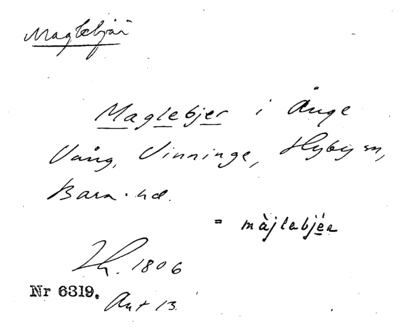 Maglebjär
Maglebjer i Ånge
Vång, Vinninge, Hyby sn,
Bara hd.
= màjlabjéa
Lh. 1806
Nr 6319. Ant 13.